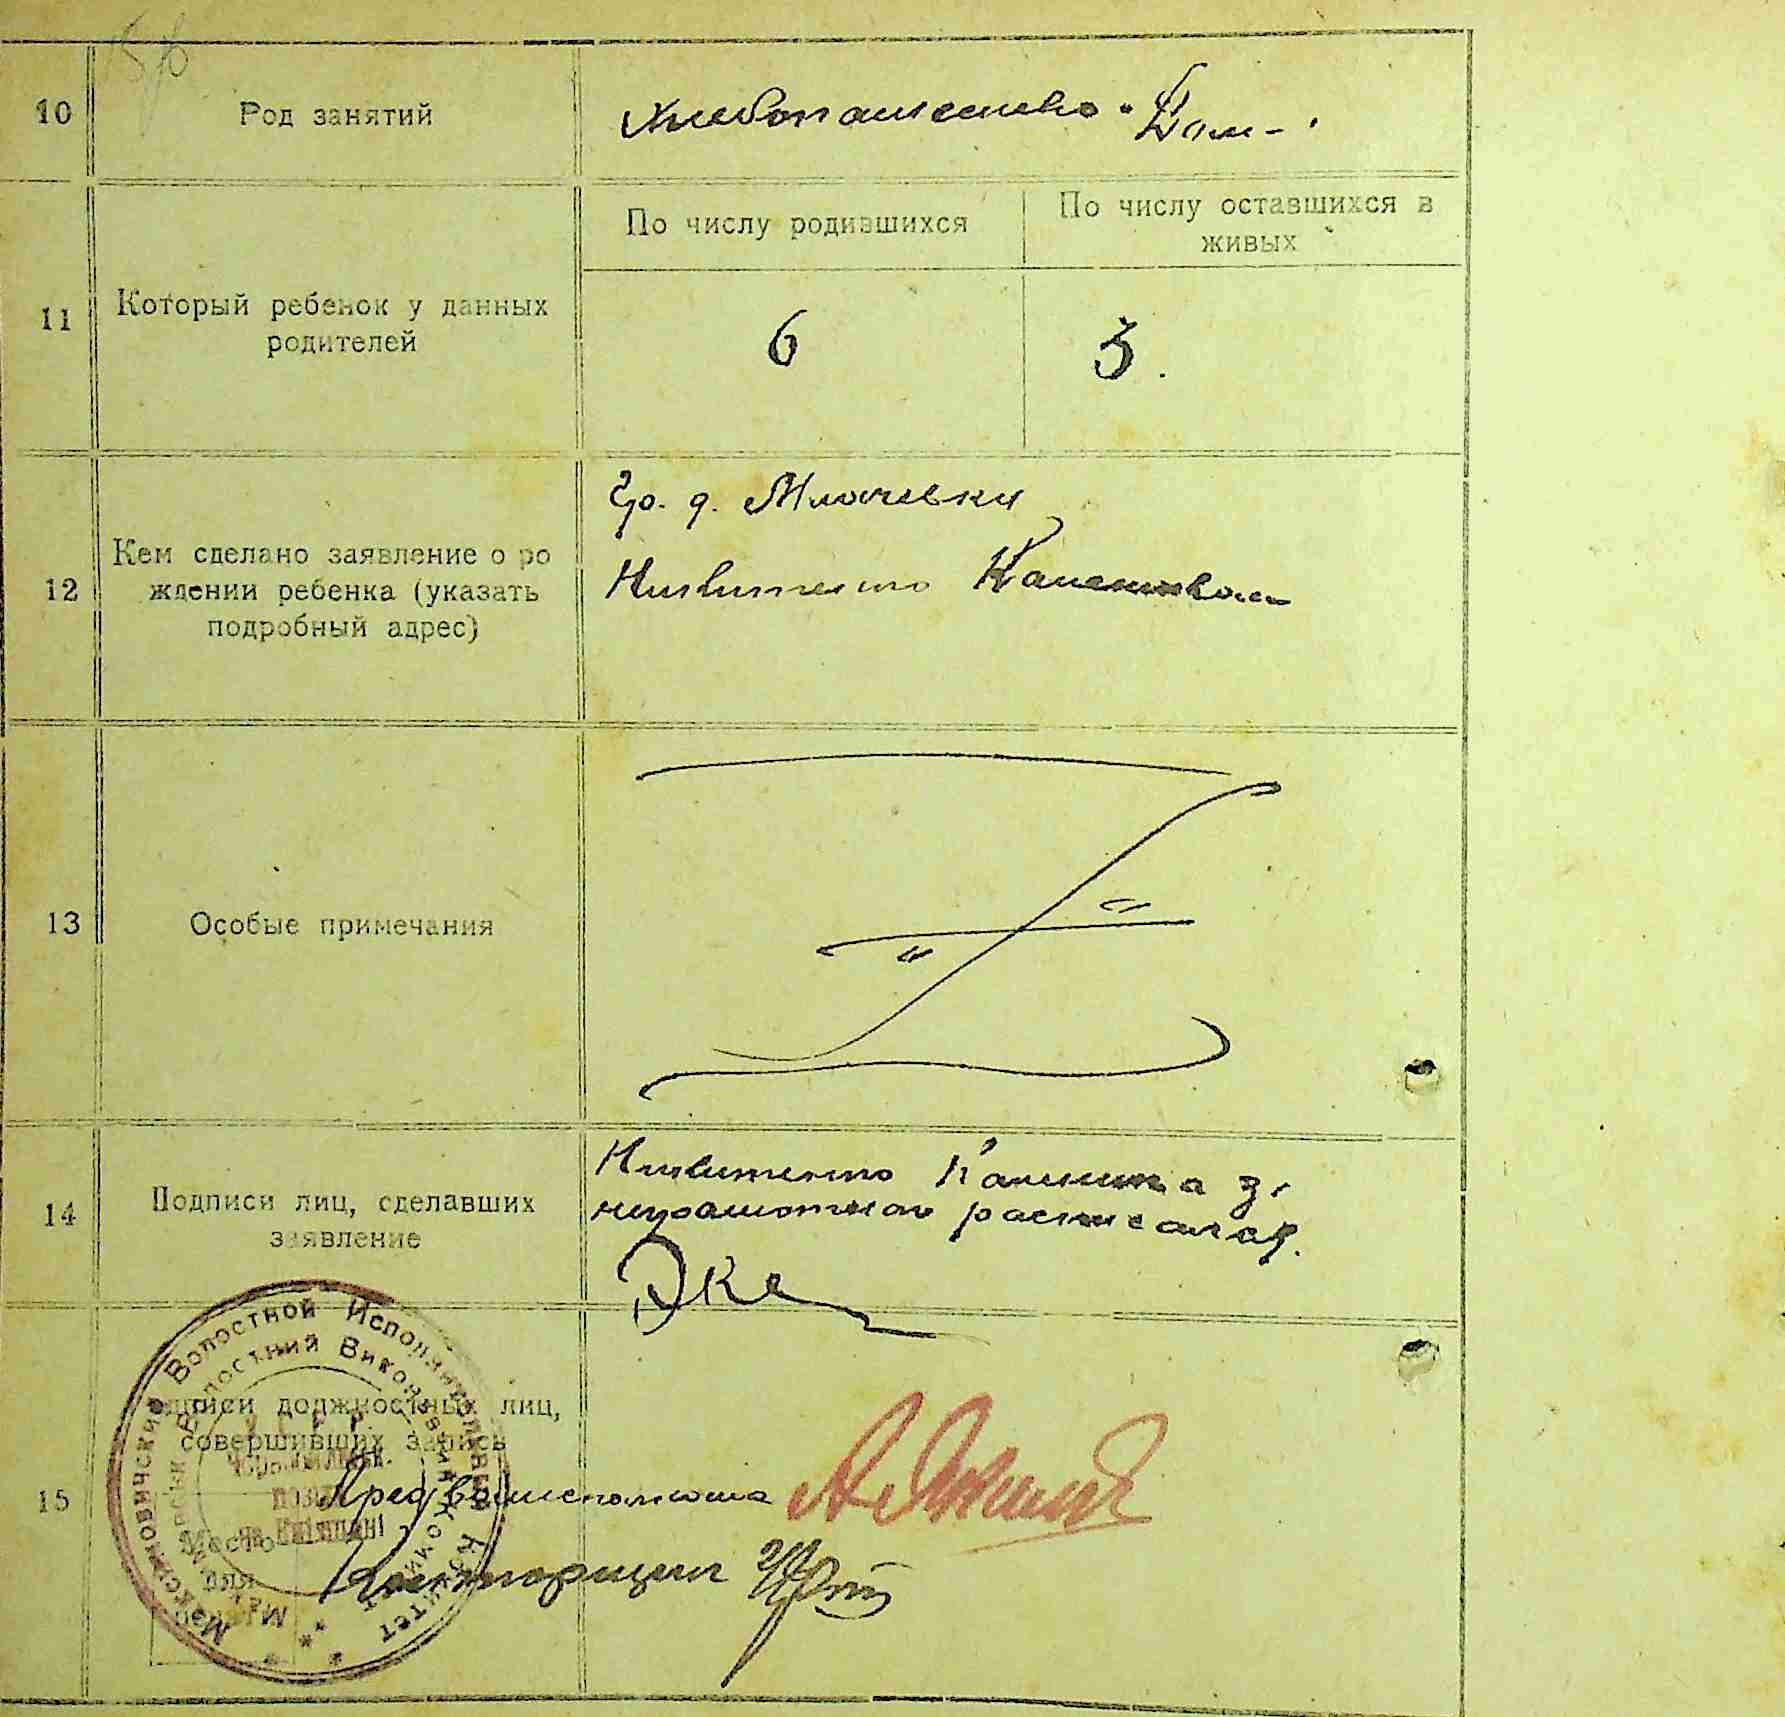 10
Род занятий
Хлебопашество Дом-
11
Который ребенок у данных
родителей
По числу родившихся
По числу оставшихся в
живых
6
3.
12
Кем сделано заявление о ро
ждении ребенка (указать
подробный адрес)
Гр. д. Млачевки
Никитенко
13
Особые примечания
14
Подписи лиц, сделавших
заявление
Никитенко
неграмотного расписался.
15
Подписи должностных лиц,
совершивших запись
Пред волисполкома
Место
для
печати
Максимовичский Волостной Исполнительный Комитет
Волостний Виконавчий Комітет